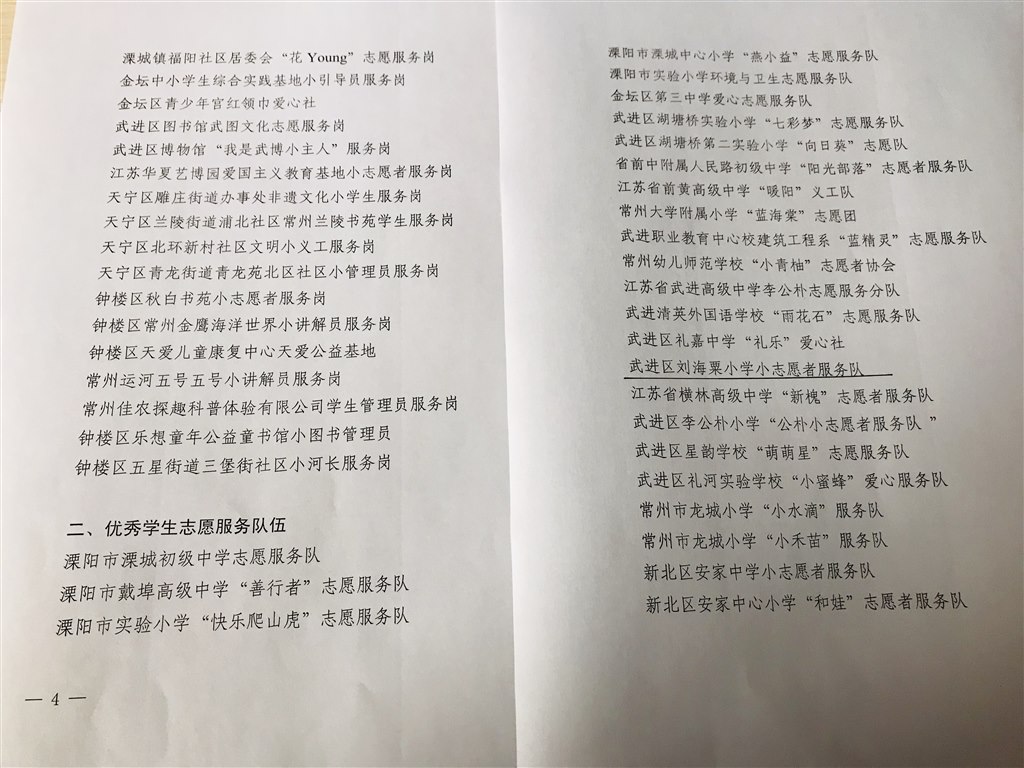 溧城镇福阳社区居委会“花 Young”志愿服务岗
金坛中小学生综合实践基地小引导员服务岗
金坛区青少年宫红领巾爱心社
武进区图书馆武图文化志愿服务岗
武进区博物馆“我是武博小主人”服务岗
江苏华夏艺博园爱国主义教育基地小志愿者服务岗
天宁区雕庄街道办事处非遗文化小学生服务岗
天宁区兰陵街道浦北社区常州兰陵书苑学生服务岗
天宁区北环新村社区文明小义工服务岗
天宁区青龙街道青龙苑北区社区小管理员服务岗
钟楼区秋白书苑小志愿者服务岗
钟楼区常州金鹰海洋世界小讲解员服务岗
钟楼区天爱儿童康复中心天爱公益基地
常州运河五号五号小讲解员服务岗
常州佳农探趣科普体验有限公司学生管理员服务岗
钟楼区乐想童年公益童书馆小图书管理员
钟楼区五星街道三堡街社区小河长服务岗
二、优秀学生志愿服务队伍
溧阳市溧城初级中学志愿服务队
溧阳市戴埠高级中学“善行者”志愿服务队
溧阳市实验小学“快乐爬山虎”志愿服务队
— 4 —
溧阳市溧城中心小学“燕小益”志愿服务队
溧阳市实验小学环境与卫生志愿服务队
金坛区第三中学爱心志愿服务队
武进区湖塘桥实验小学“七彩梦”志愿服务队
武进区湖塘桥第二实验小学“向日葵”志愿队
省前中附属人民路初级中学“阳光部落”志愿者服务队
江苏省前黄高级中学“暖阳”义工队
常州大学附属小学“蓝海棠”志愿团
武进职业教育中心校建筑工程系“蓝精灵”志愿服务队
常州幼儿师范学校“小青柚”志愿者协会
江苏省武进高级中学李公朴志愿服务分队
武进清英外国语学校“雨花石”志愿服务队
武进区礼嘉中学“礼乐”爱心社
武进区刘海粟小学小志愿者服务队
江苏省横林高级中学“新槐”志愿者服务队
武进区李公朴小学“公朴小志愿者服务队 ”
武进区星韵学校“萌萌星”志愿服务队
武进区礼河实验学校“小蜜蜂”爱心服务队
常州市龙城小学“小水滴”服务队
常州市龙城小学“小禾苗”服务队
新北区安家中学小志愿者服务队
新北区安家中心小学“和娃”志愿者服务队